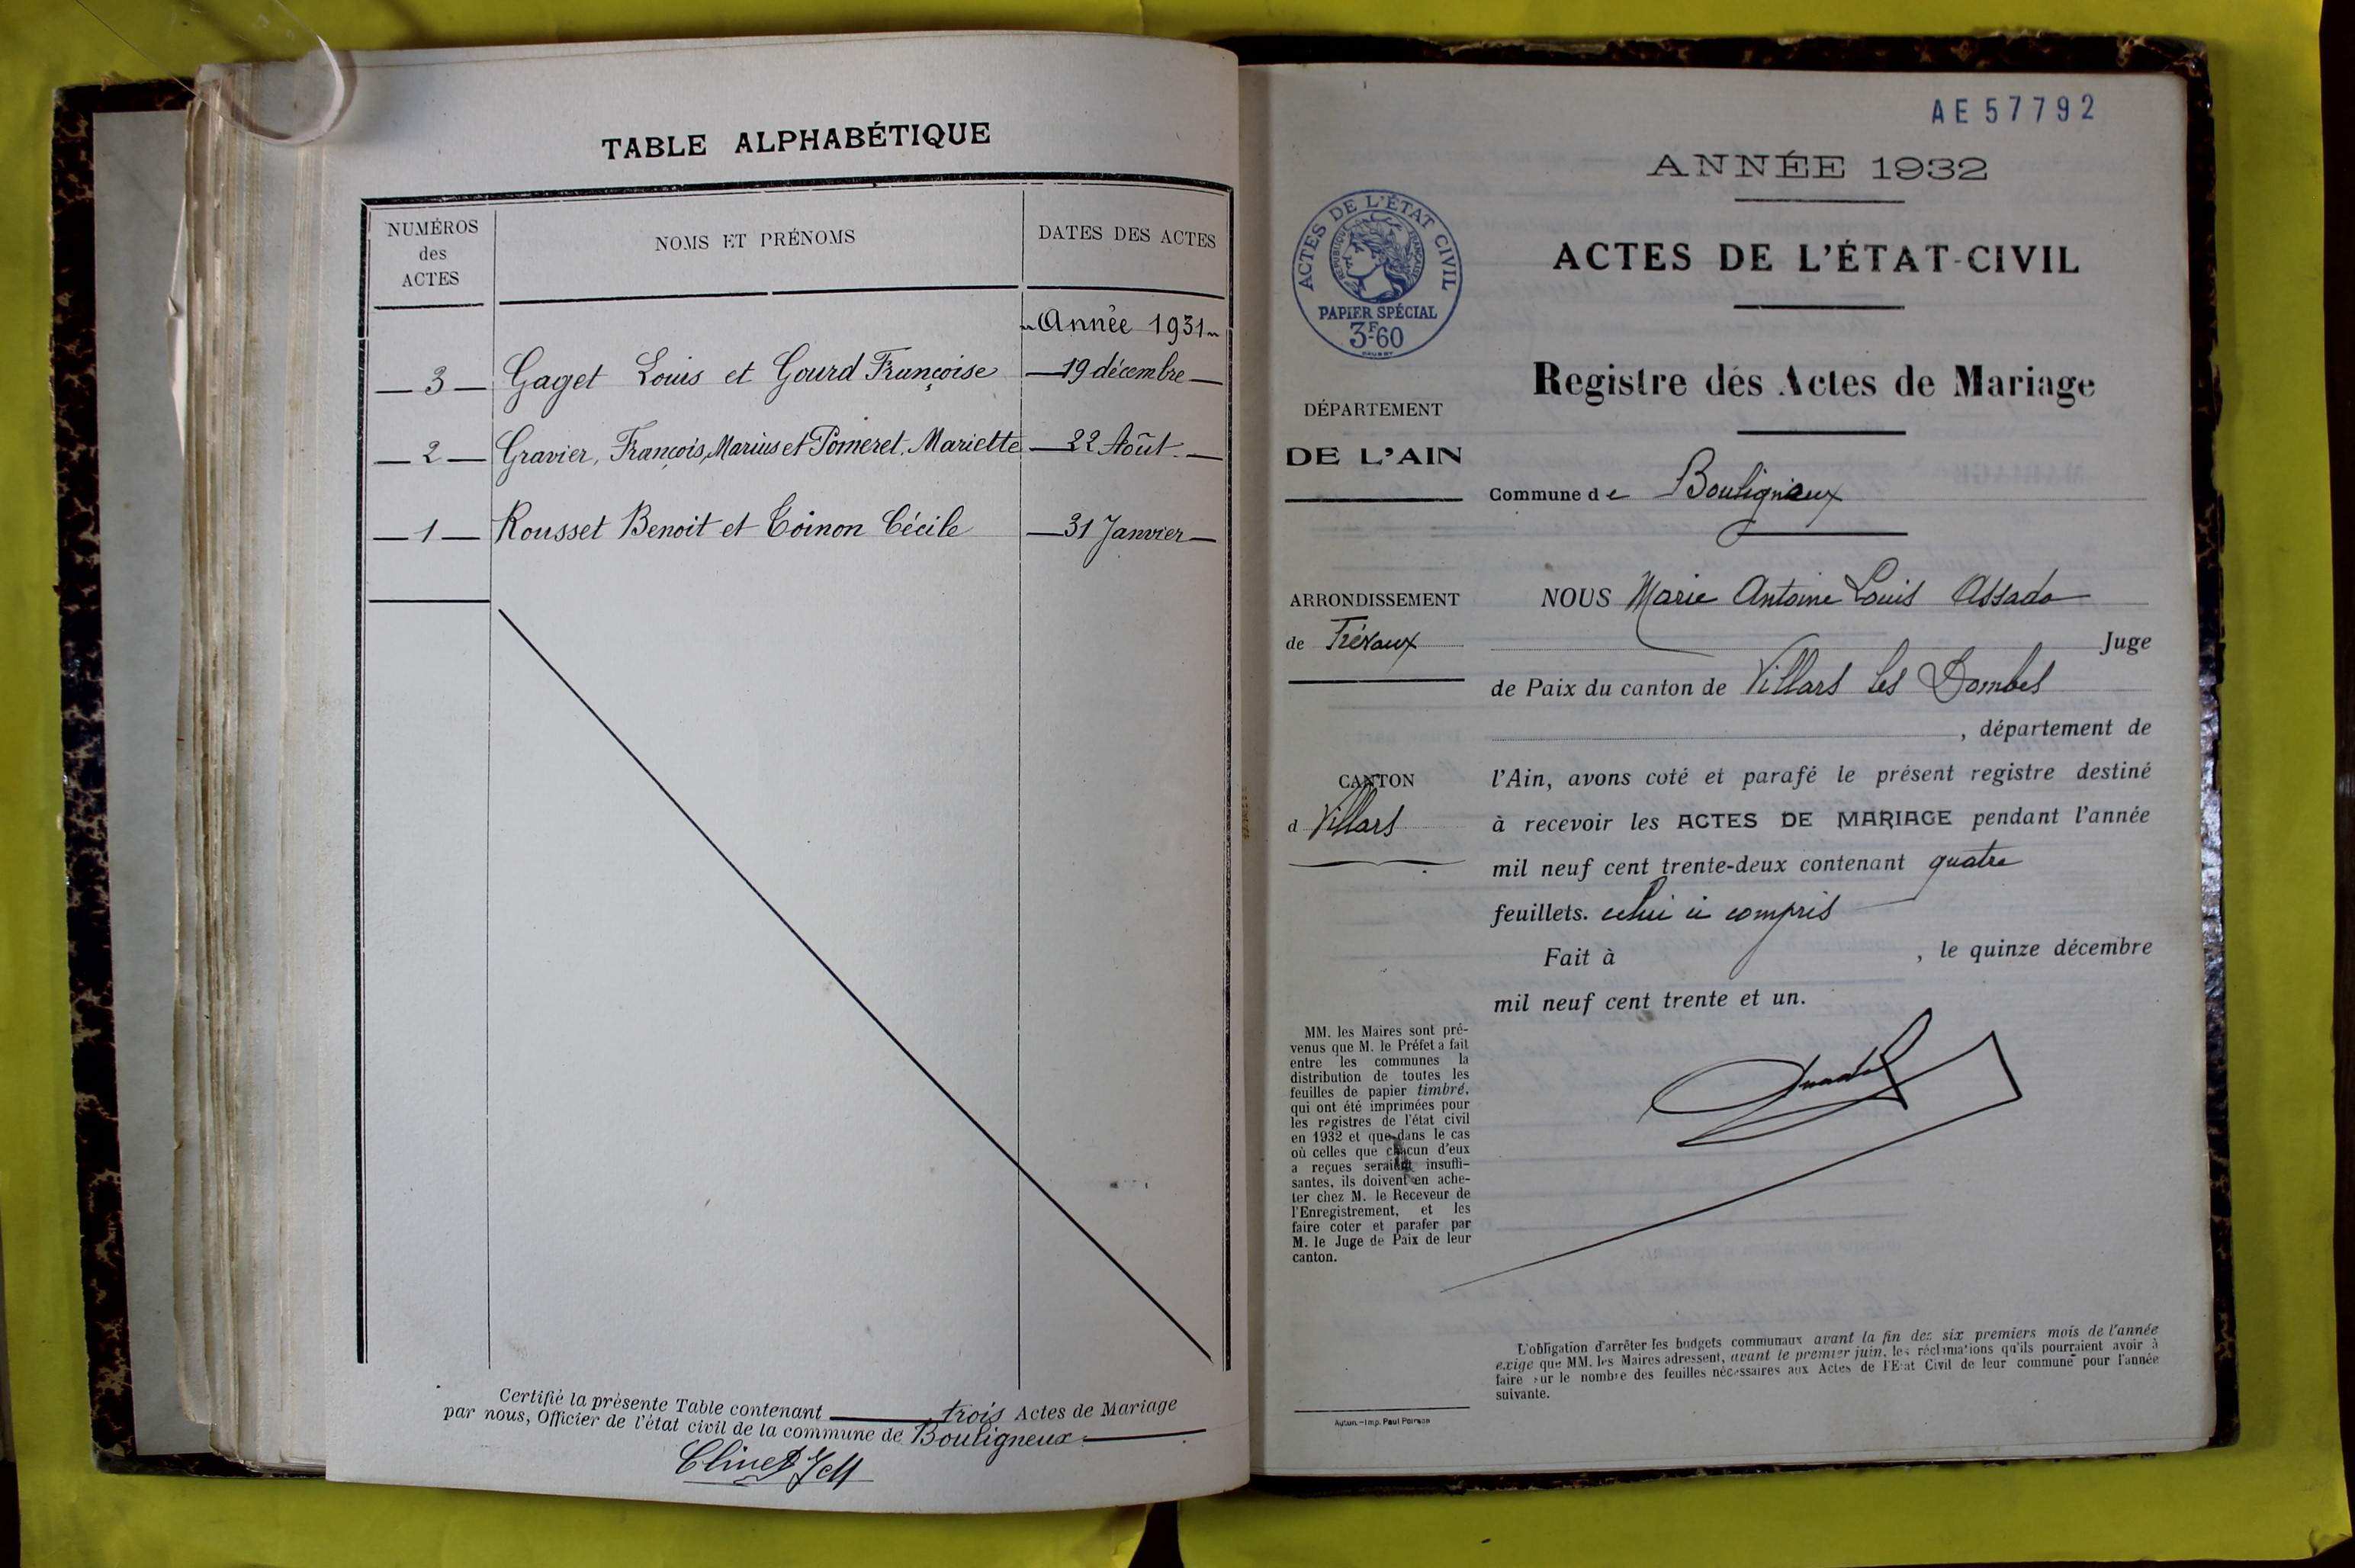 TABLE ALPHABÉTIQUE
NUMÉROS
des
ACTES
NOMS ET PRÉNOMS
DATES DES ACTES
Année 1931
3 Gaget Louis et Gourd Françoise 19 décembre
2 Gravier, François, Marius et Pomeret, Mariette 22 Août.
1 Rousset Benoit et Toinon Cécile 31 Janvier
Certifié la présente Table contenant trois Actes de Mariage
par nous, Officier de l'état civil de la commune de Bouligneux
AE57792
ANNÉE 1932
ACTES DE L'ÉTAT CIVIL
RÉPUBLIQUE FRANÇAISE
PAPIER SPÉCIAL
3F60
ACTES DE L'ÉTAT-CIVIL
Registre des Actes de Mariage
DÉPARTEMENT
DE L'AIN
Commune de Bouligneux
ARRONDISSEMENT
de Trévoux
CANTON
d Villars
NOUS Marie Antoine Louis Assada
Juge
de Paix du canton de Villars les Dombes
, département de
l'Ain, avons coté et parafé le présent registre destiné
à recevoir les ACTES DE MARIAGE pendant l'année
mil neuf cent trente-deux contenant quatre
feuillets. celui ci compris
Fait à , le quinze décembre
mil neuf cent trente et un.
MM. les Maires sont pré-
venus que M. le Préfet a fait
entre les communes la
distribution de toutes les
feuilles de papier timbré,
qui ont été imprimées pour
les registres de l'état civil
en 1932 et que dans le cas
où celles que chacun d'eux
a reçues seraient insuffi-
santes, ils doivent en ache-
ter chez M. le Receveur de
l'Enregistrement, et les
faire coter et parafer par
M. le Juge de Paix de leur
canton.
L'obligation d'arrêter les budgets communaux avant la fin des six premiers mois de l'année
exige que MM. les Maires adressent, avant le premier juin, les réclamations qu'ils pourraient avoir à
faire sur le nombre des feuilles nécessaires aux Actes de l'Etat Civil de leur commune pour l'année
suivante.
Autun. - Imp. Paul Poirson